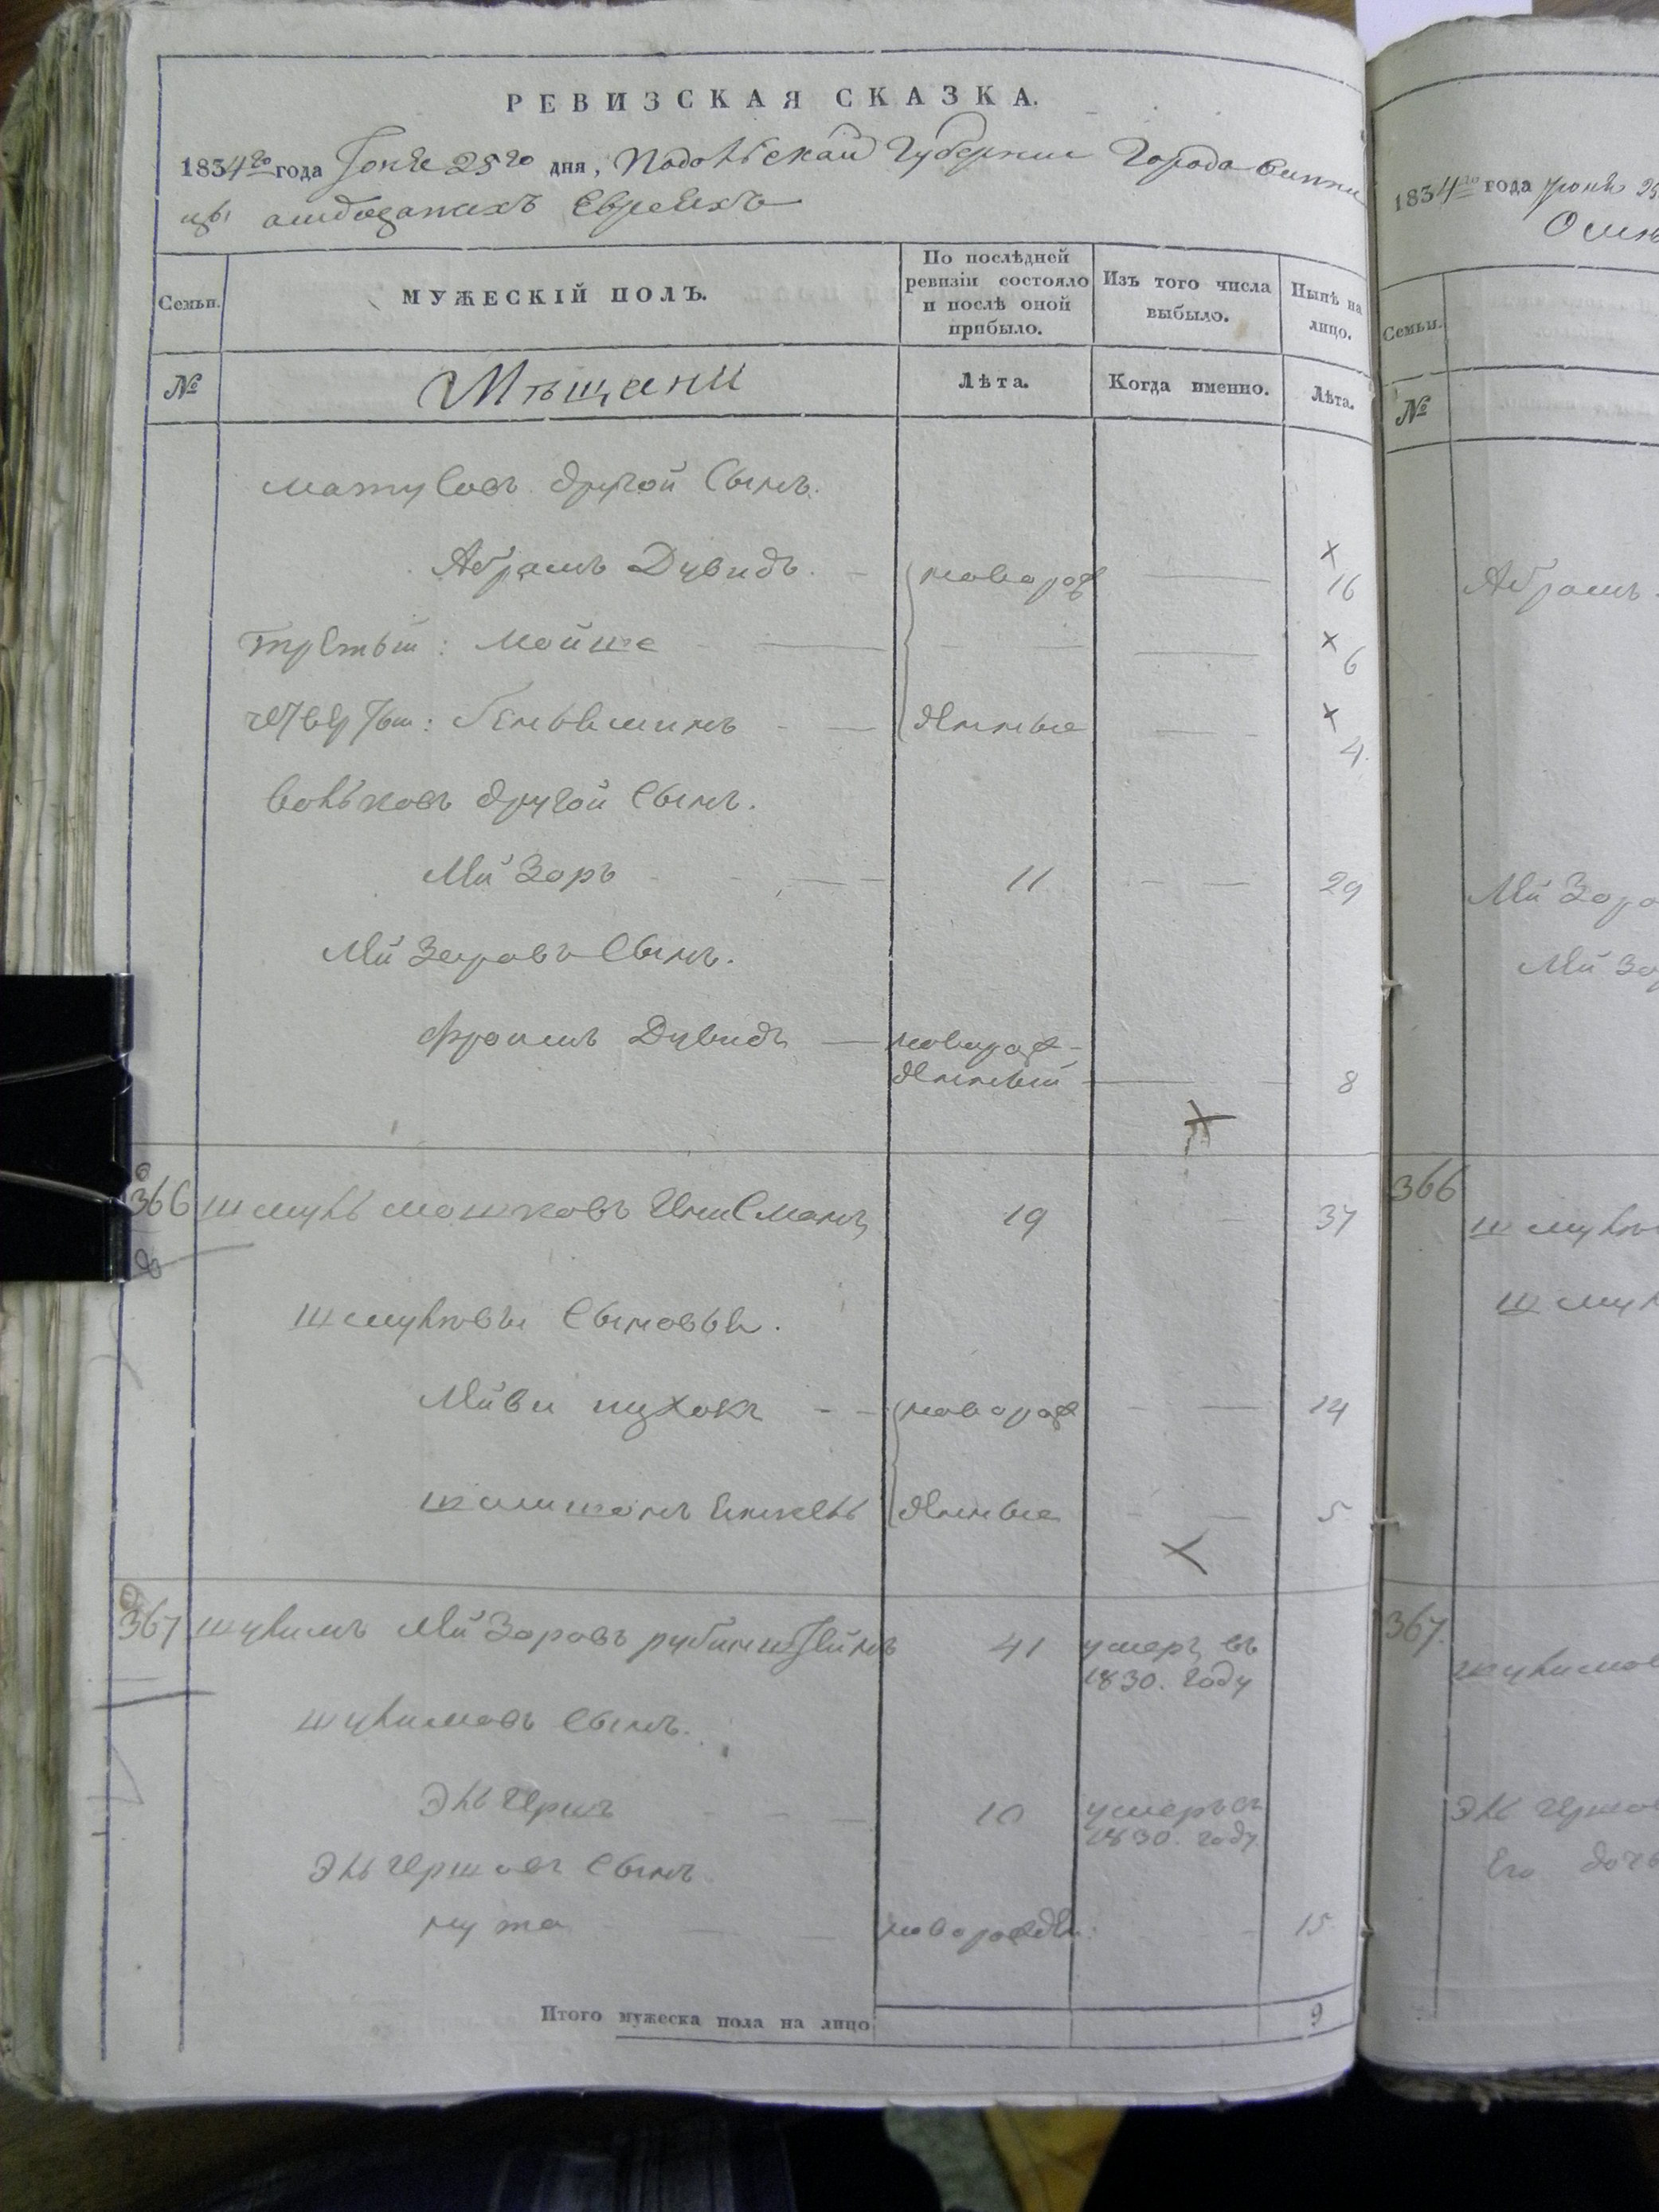 РЕВИЗСКАЯ СКАЗКА.
1834го года Іюня 25го дня, Подольскай Губернии Города Винни
цы Евреихъ
Семьи. МУЖЕСКІЙ ПОЛЪ. По послѣдней ревизіи состояло и послѣ оной прибыло. Изъ того числа выбыло. Нынѣ на лицо.
№ Мѣщани Лѣта. Когда именно. Лѣта.
матусовъ другой Сынъ.
Абрамъ Дувидъ новорож 16
третьій: Мойше 6
четвертый: Беньяминъ дянные 4
вольковъ другой Сынъ.
Лейзоръ 11 29
Лейзеровъ Сынъ.
Фроимъ Дувидъ новорож-
дянный 8
366 шмуль мошковъ 19 37
шмулювы Сыновья.
Лейви пухокъ новорож 14
Енкель дянные 5
367 шулимъ Лейзоровъ рубинштейнъ 41 умеръ въ
1830. году
шулимовъ Сынъ.
Эль Герш 10 умеръ въ
1830. году
Эль Гершовъ Сынъ
нута новорождян. 15
Итого мужеска пола на лицо 9
1834го года Іюня 25
Семьи.
№
Абрамъ
Лейзоро
Лей зе
366
шмулю
шмул
367.
шулимов
Эль Гершов
Его дочь